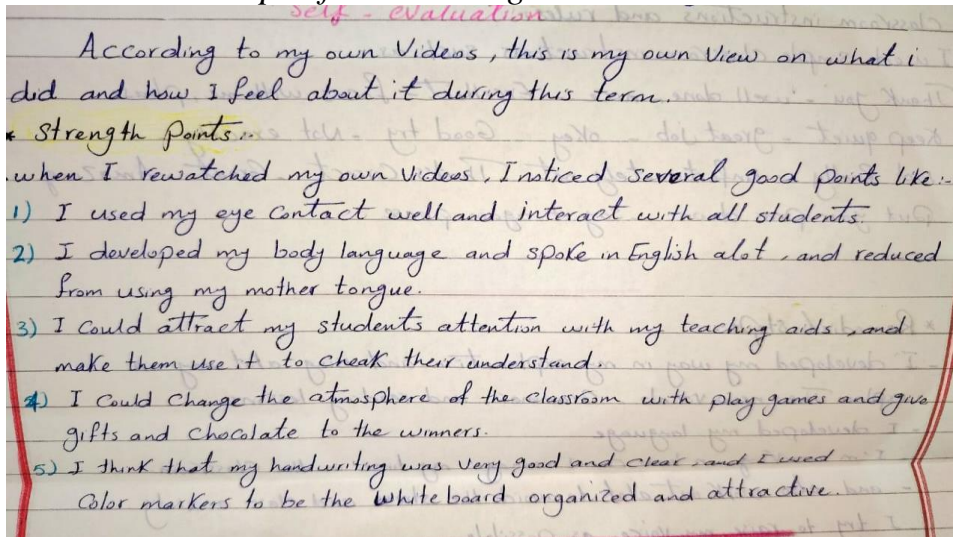 self - evaluation
According to my own Videos, this is my own View on what i
did and how I feel about it during this term.
* Strength Points:-
.when I rewatched my own videos, I noticed several good points like:-
1) I used my eye contact well and interact with all students.
2) I developed my body language and spoke in English alot, and reduced
from using my mother tongue.
3) I could attract my students attention with my teaching aids, and
make them use it to cheak their understand.
4) I could change the atmosphere of the classroom with play games and give
gifts and chocolate to the winners.
5) I think that my handwriting was very good and clear, and I used
Color markers to be the white board organized and attractive.